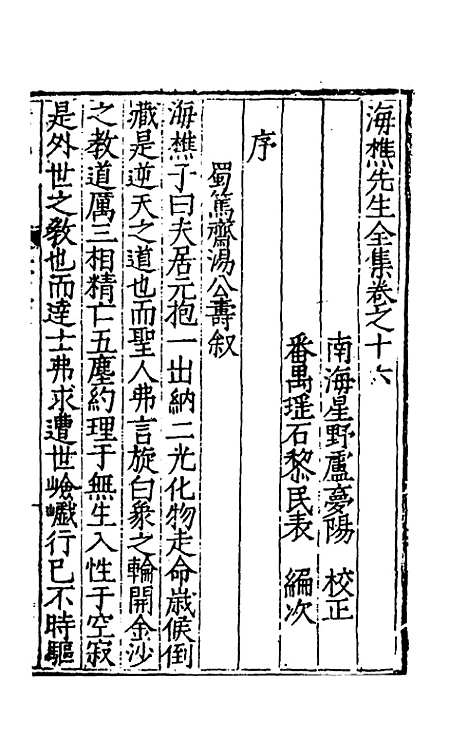 海樵先生全集卷之十六
南海星野盧夢陽　校正
番禺瑶石黎民表　編次
序
蜀篤齋湯公壽叙
海樵子曰夫居元抱一出納二光化物走命嵗候倒
藏是逆天之道也而聖人弗言旋白象之輪開金沙
之教道厲三相精亡五塵約理于無生入性于空寂
是外世之教也而達士弗求遭世嶮巇行已不時驅